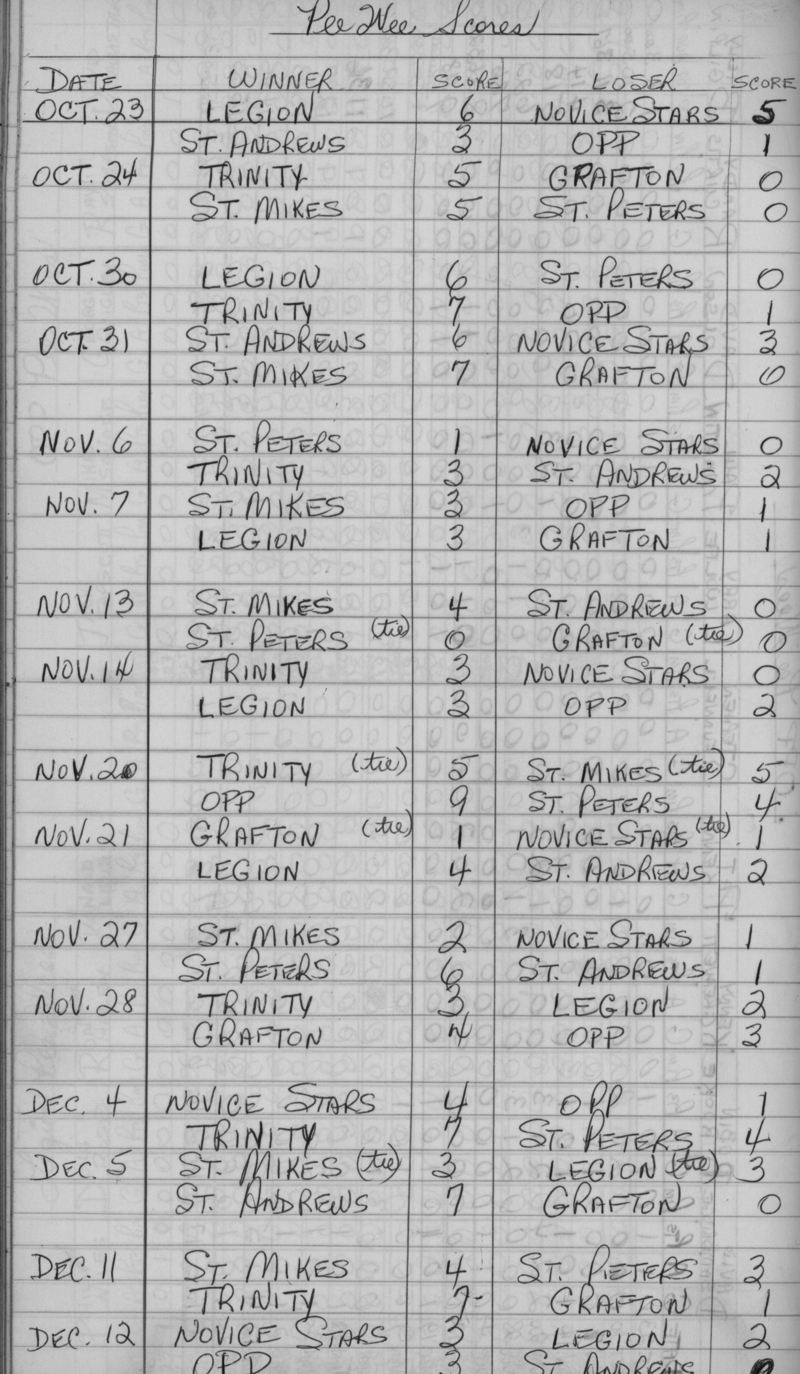 Pee Wee Scores
DATE WINNER SCORE LOSER SCORE
OCT. 23 LEGION 6 NOVICE STARS 5
ST. ANDREWS 3 OPP 1
OCT. 24 TRINITY 5 GRAFTON 0
ST. MIKES 5 ST. PETERS 0
OCT. 30 LEGION 6 ST. PETERS 0
TRINITY 7 OPP 1
OCT. 31 ST. ANDREWS 6 NOVICE STARS 3
ST. MIKES 7 GRAFTON 0
NOV. 6 ST. PETERS 1 NOVICE STARS 0
TRINITY 3 ST. ANDREWS 2
NOV. 7 ST. MIKES 3 OPP 1
LEGION 3 GRAFTON 1
NOV. 13 ST. MIKES 4 ST. ANDREWS 0
ST. PETERS (tie) 0 GRAFTON (tie) 0
NOV. 14 TRINITY 3 NOVICE STARS 0
LEGION 3 OPP 2
NOV. 20 TRINITY (tie) 5 ST. MIKES (tie) 5
OPP 9 ST. PETERS 4
NOV. 21 GRAFTON (tie) 1 NOVICE STARS (tie) 1
LEGION 4 ST. ANDREWS 2
NOV. 27 ST. MIKES 2 NOVICE STARS 1
ST. PETERS 6 ST. ANDREWS 1
NOV. 28 TRINITY 3 LEGION 2
GRAFTON 4 OPP 3
DEC. 4 NOVICE STARS 4 OPP 1
TRINITY 7 ST. PETERS 4
DEC. 5 ST. MIKES (tie) 3 LEGION (tie) 3
ST. ANDREWS 7 GRAFTON 0
DEC. 11 ST. MIKES 4 ST. PETERS 3
TRINITY 7 GRAFTON 1
DEC. 12 NOVICE STARS 3 LEGION 2
OPP 3 ST. ANDREWS